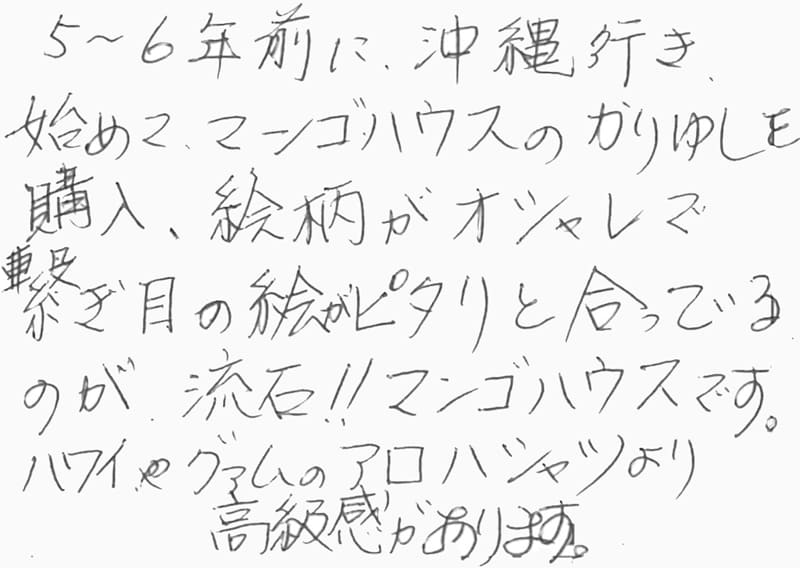 5～6年前に、沖縄行き、
始めて、マンゴハウスのかりゆしを
購入、絵柄がオシャレで
繋ぎ目の絵がピタリと合っている
のが、流石!!マンゴハウスです。
ハワイやグァムのアロハシャツより
高級感があります。